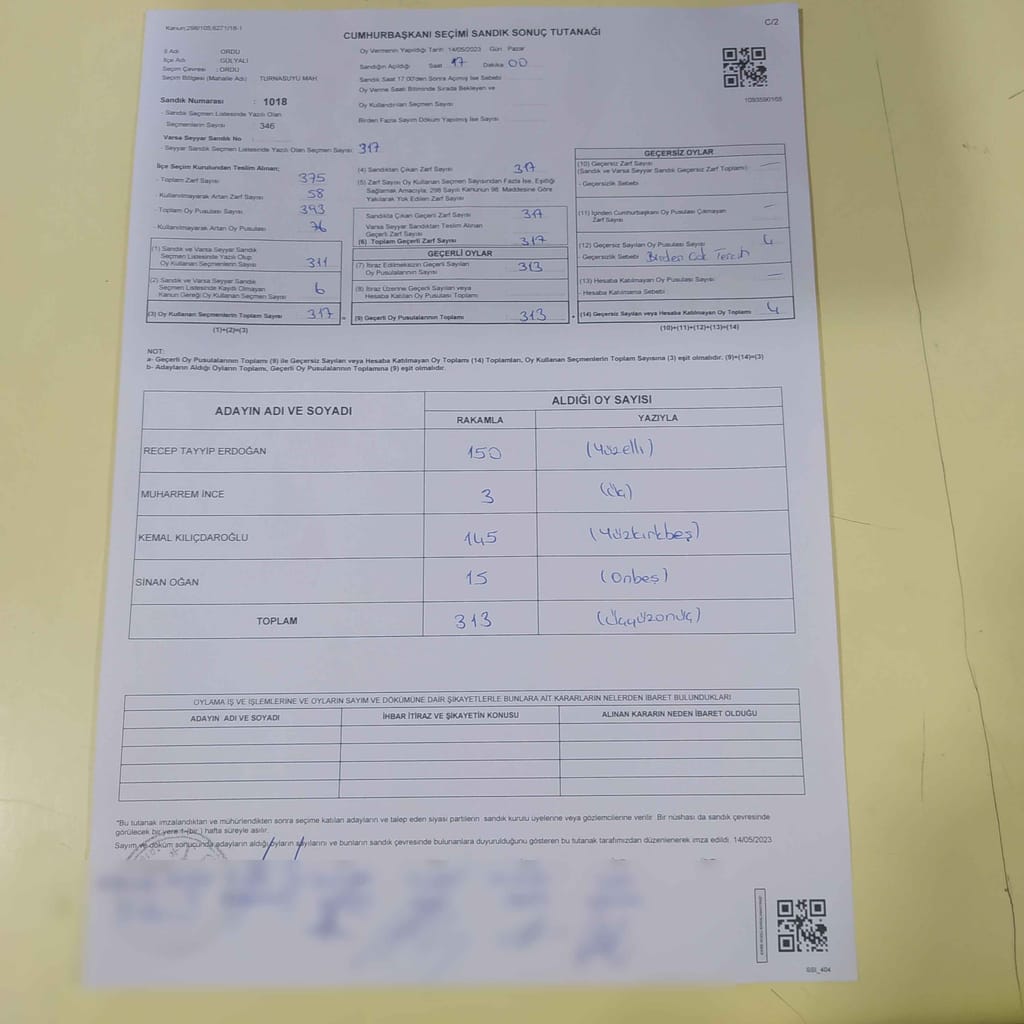 Kanun:298/105,6271/18-1
C/2
CUMHURBAŞKANI SEÇİMİ SANDIK SONUÇ TUTANAĞI
İl Adı : ORDU
İlçe Adı : GÜLYALI
Seçim Çevresi : ORDU
Seçim Bölgesi (Mahalle Adı) TURNASUYU MAH.
Sandık Numarası : 1018
- Sandık Seçmen Listesinde Yazılı Olan
Seçmenlerin Sayısı : 346
Varsa Seyyar Sandık No
- Seyyar Sandık Seçmen Listesinde Yazılı Olan Seçmen Sayısı: 317
Oy Vermenin Yapıldığı Tarih 14/05/2023 Gün Pazar
Sandığın Açıldığı Saat 17 Dakika 00
Sandık Saat 17:00'den Sonra Açılmış İse Sebebi
Oy Verme Saati Bitiminde Sırada Bekleyen ve
Oy Kullandırılan Seçmen Sayısı
Birden Fazla Sayım Döküm Yapılmış İse Sayısı
1093590165
İlçe Seçim Kurulundan Teslim Alınan;
- Toplam Zarf Sayısı 375
- Kullanılmayarak Artan Zarf Sayısı 58
- Toplam Oy Pusulası Sayısı 393
- Kullanılmayarak Artan Oy Pusulası 76
(1) Sandık ve Varsa Seyyar Sandık
Seçmen Listesinde Yazılı Olup
Oy Kullanan Seçmenlerin Sayısı 311
(2) Sandık ve Varsa Seyyar Sandık
Seçmen Listesinde Kayıtlı Olmayan
Kanun Gereği Oy Kullanan Seçmen Sayısı 6
(3) Oy Kullanan Seçmenlerin Toplam Sayısı 317 =
(1)+(2)=(3)
(4) Sandıktan Çıkan Zarf Sayısı 317
(5) Zarf Sayısı Oy Kullanan Seçmen Sayısından Fazla İse, Eşitliği
Sağlamak Amacıyla, 298 Sayılı Kanunun 98. Maddesine Göre
Yakılarak Yok Edilen Zarf Sayısı
Sandıkta Çıkan Geçerli Zarf Sayısı 317
Varsa Seyyar Sandıktan Teslim Alınan
Geçerli Zarf Sayısı
(6) Toplam Geçerli Zarf Sayısı 317
GEÇERLİ OYLAR
(7) İtiraz Edilmeksizin Geçerli Sayılan
Oy Pusulalarının Sayısı 313
(8) İtiraz Üzerine Geçerli Sayılan veya
Hesaba Katılan Oy Pusulası Toplamı
(9) Geçerli Oy Pusulalarının Toplamı 313 +
GEÇERSİZ OYLAR
(10) Geçersiz Zarf Sayısı
(Sandık ve Varsa Seyyar Sandık Geçersiz Zarf Toplamı) —
- Geçersizlik Sebebi
(11) İçinden Cumhurbaşkanı Oy Pusulası Çıkmayan
Zarf Sayısı —
(12) Geçersiz Sayılan Oy Pusulası Sayısı 4
- Geçersizlik Sebebi Birden Çok Tercih
(13) Hesaba Katılmayan Oy Pusulası Sayısı —
- Hesaba Katılmama Sebebi
(14) Geçersiz Sayılan veya Hesaba Katılmayan Oy Toplamı 4
(10)+(11)+(12)+(13)=(14)
NOT:
a- Geçerli Oy Pusulalarının Toplamı (9) ile Geçersiz Sayılan veya Hesaba Katılmayan Oy Toplamı (14) Toplamları, Oy Kullanan Seçmenlerin Toplam Sayısına (3) eşit olmalıdır. (9)+(14)=(3)
b- Adayların Aldığı Oyların Toplamı, Geçerli Oy Pusulalarının Toplamına (9) eşit olmalıdır.
ADAYIN ADI VE SOYADI ALDIĞI OY SAYISI
RAKAMLA YAZIYLA
RECEP TAYYİP ERDOĞAN 150 (Yüzelli)
MUHARREM İNCE 3 (Üç)
KEMAL KILIÇDAROĞLU 145 (Yüzkırkbeş)
SİNAN OĞAN 15 (Onbeş)
TOPLAM 313 (Üçyüzonüç)
OYLAMA İŞ VE İŞLEMLERİNE VE OYLARIN SAYIM VE DÖKÜMÜNE DAİR ŞİKAYETLERLE BUNLARA AİT KARARLARIN NELERDEN İBARET BULUNDUKLARI
ADAYIN ADI VE SOYADI İHBAR İTİRAZ VE ŞİKAYETİN KONUSU ALINAN KARARIN NEDEN İBARET OLDUĞU
"Bu tutanak imzalandıktan ve mühürlendikten sonra seçime katılan adayların ve talep eden siyasi partilerin sandık kurulu üyelerine veya gözlemcilerine verilir. Bir nüshası da sandık çevresinde
görülecek bir yere 1 (bir ) hafta süreyle asılır.
Sayım ve döküm sonucunda adayların aldığı oyların sayılarını ve bunların sandık çevresinde bulunanlara duyurulduğunu gösteren bu tutanak tarafımızdan düzenlenerek imza edildi. 14/05/2023
SSI_404